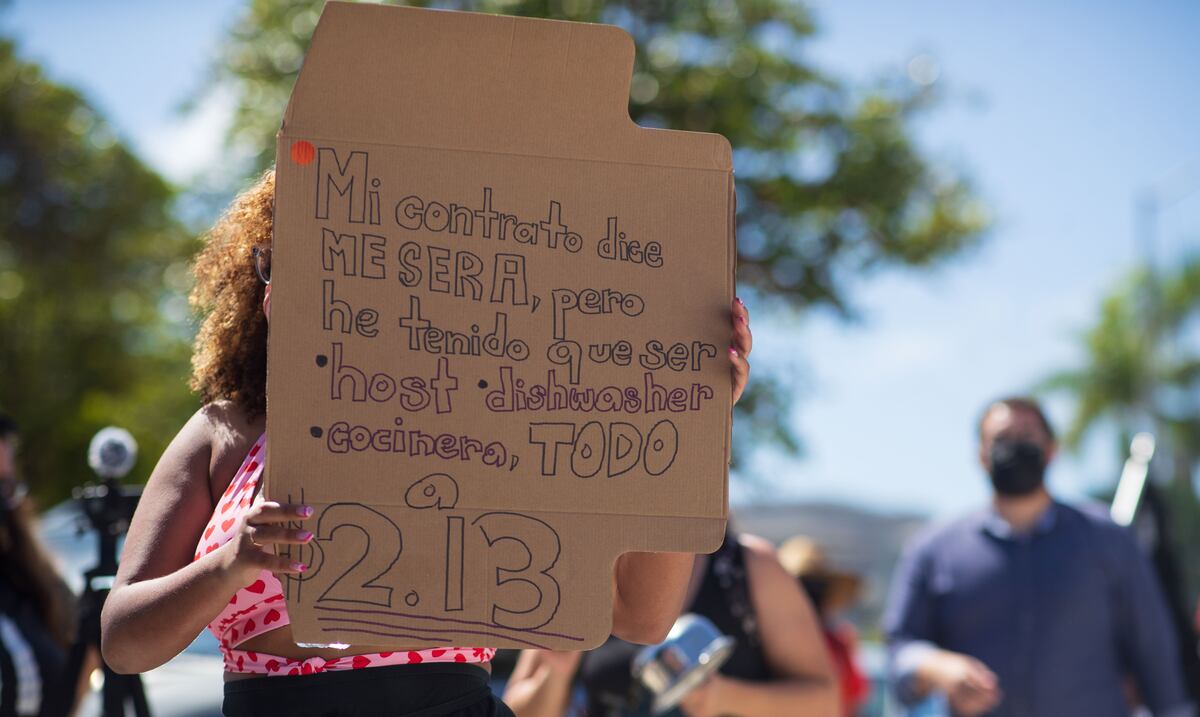 Mi contrato dice
MESERA, pero
he tenido que ser
• host • dishwasher
• cocinera, TODO
a
$2.13